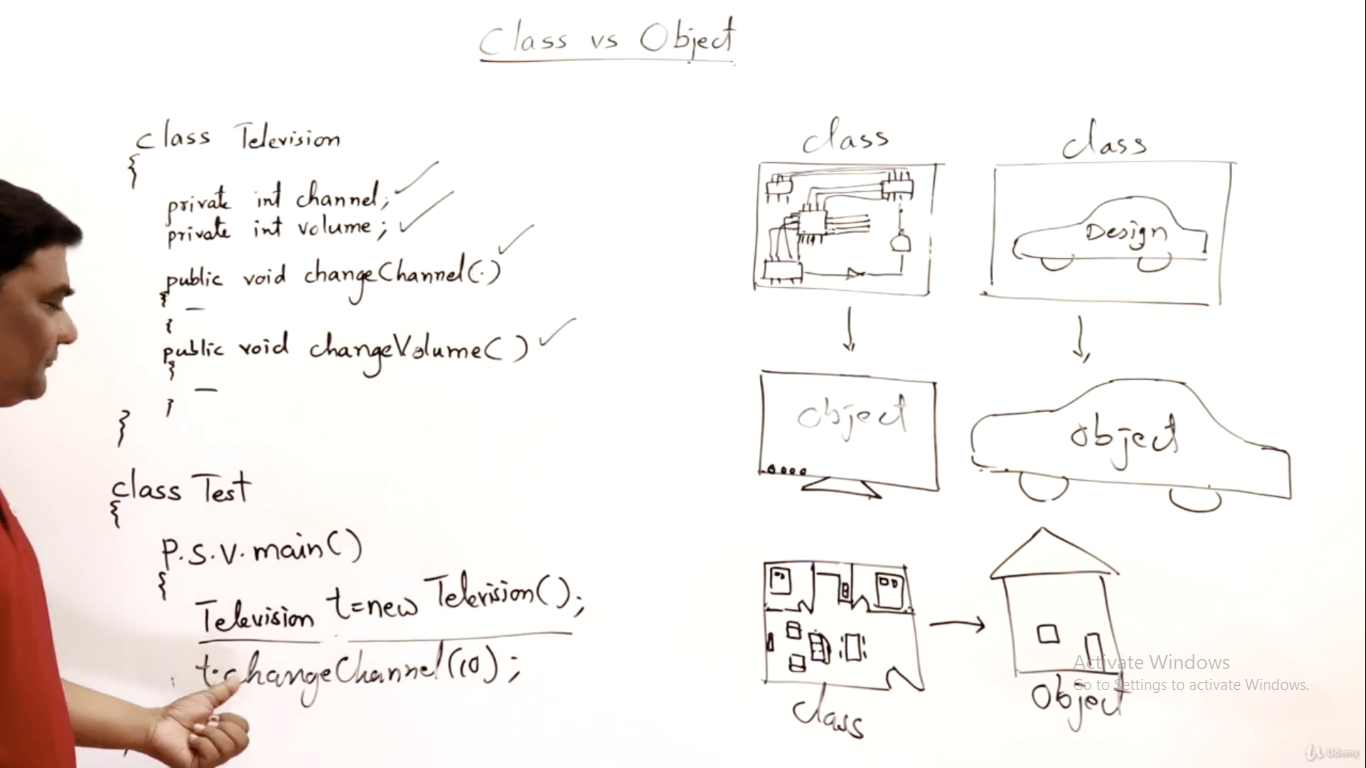 Class vs Object
class Television
{
private int channel;
private int volume;
public void changeChannel(.)
{
—
}
public void changeVolume()
{
—
}
}
class Test
{
P.S.V.main()
{
Television t=new Television();
t.changeChannel(10);
class
object
class
Design
object
class
Object
Activate Windows
Go to Settings to activate Windows.
Udemy